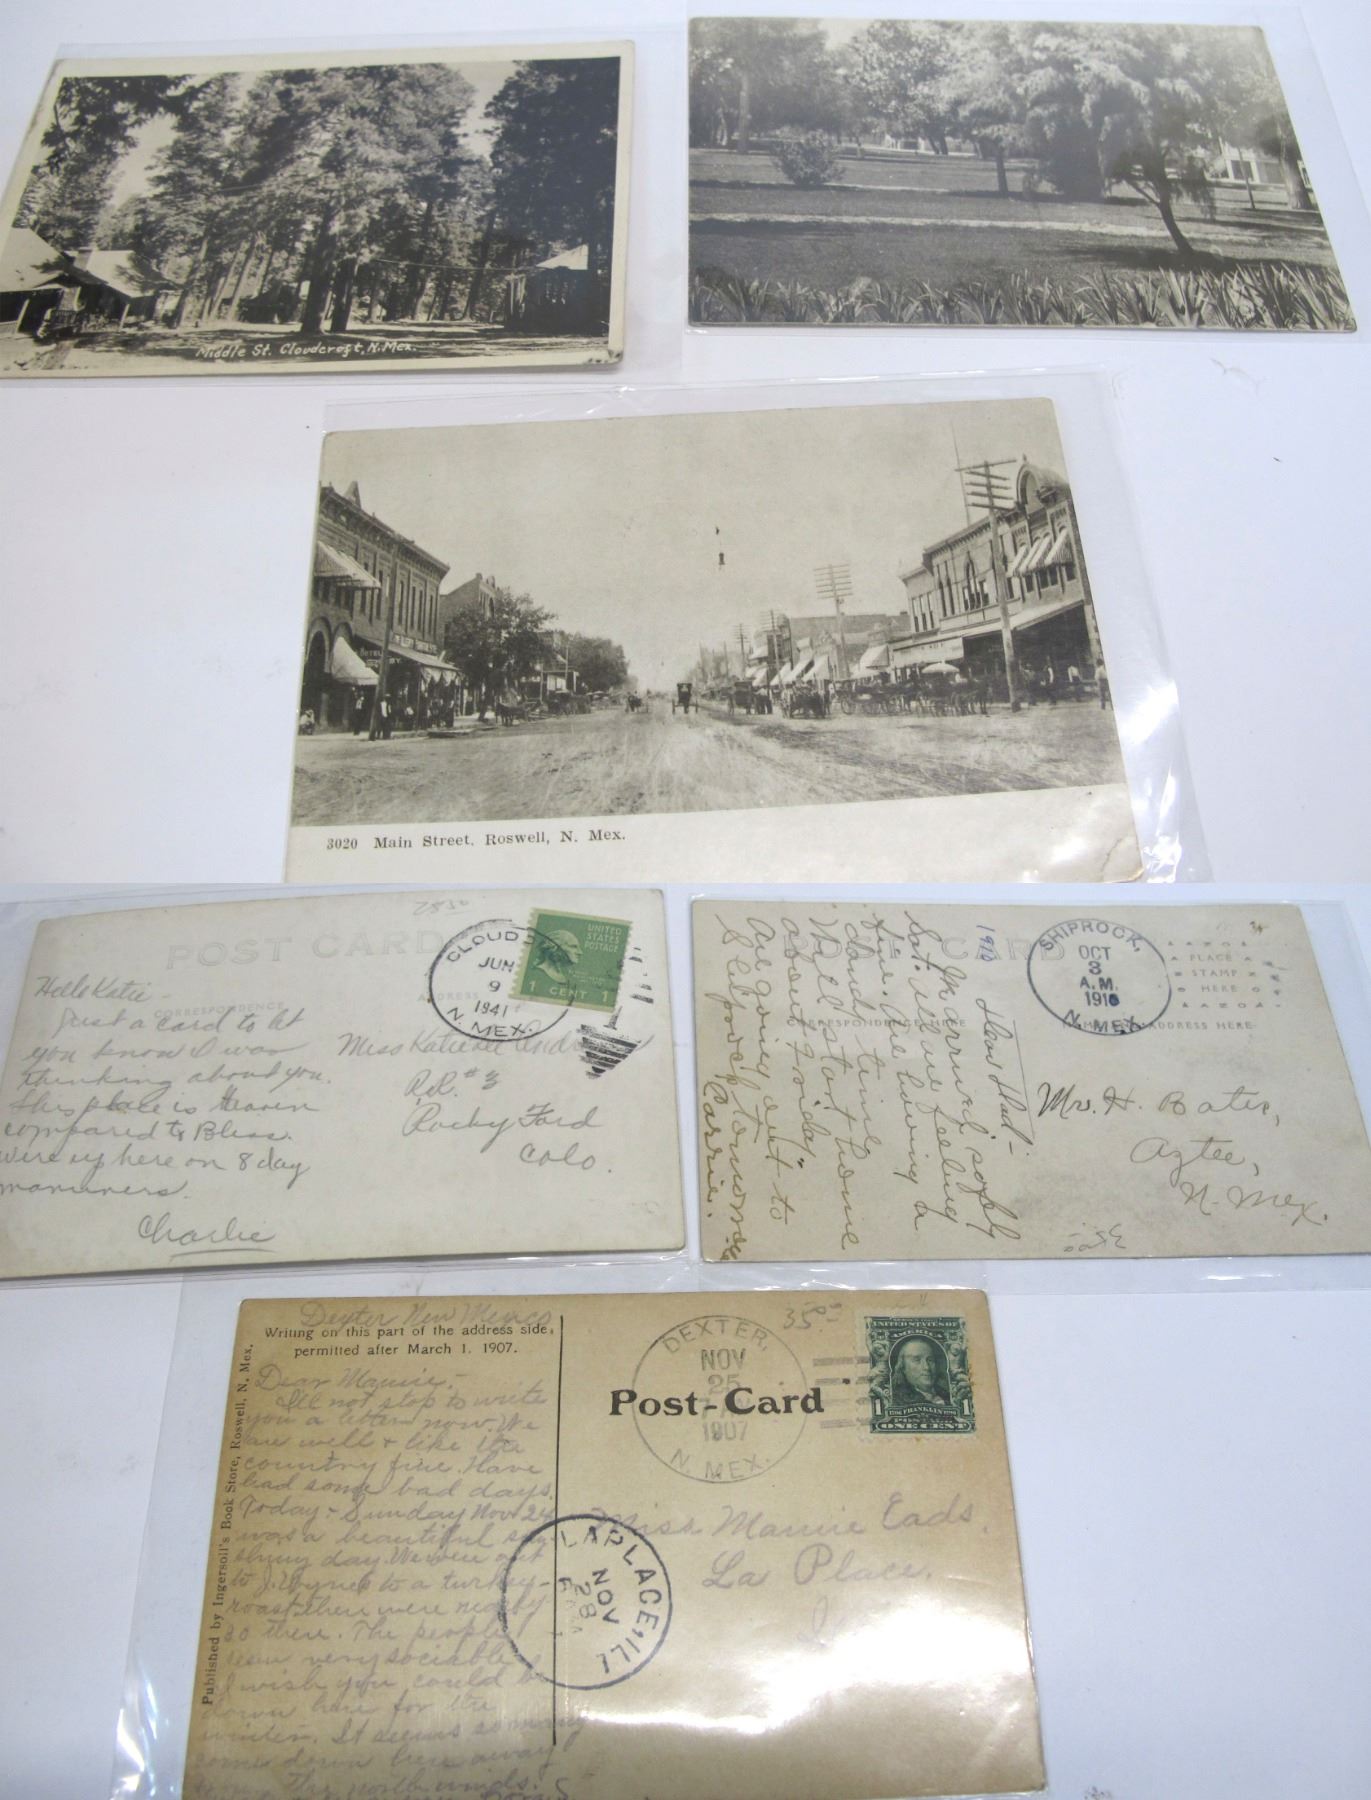 Middle St. Cloudcroft, N. Mex.
3020 Main Street, Roswell, N. Mex.
2850
POST CARD
CORRESPONDENCE
ADDRESS
CLOUD
JUN
9
1941
N. MEX.
UNITED
STATES
POSTAGE
1 CENT 1
Hello Katie -
Just a card to let
you know I was
thinking about you.
This place is Heaven
compared to Bliss.
We're up here on 8 day
manuvers.
Charlie
Miss Katie
R.R. #3
Rocky Ford
Colo.
CARD
1910
SHIPROCK,
OCT
3
A.M.
1910
N. MEX.
AZOA
PLACE
STAMP
HERE
AZOA
ADDRESS HERE
Dear Dad -
Married safely
Sat. All are feeling
fine. Are having a
dandy time
Will start home
about Friday
Are going out to
S tomorrow
Carrie.
Mr. H. Bates,
Aztec,
N. Mex.
35
Dexter New Mexico
Writing on this part of the address side,
permitted after March 1. 1907.
Published by Ingersoll's Book Store, Roswell, N. Mex.
Post-Card
DEXTER,
NOV
25
1907
N. MEX.
UNITED STATES OF
AMERICA
1 FRANKLIN 1
POSTAGE
ONE CENT
LAPLACE, ILL
NOV
28
Dear Mamie, -
I'll not stop to write
you a letter now. We
are well + like the
country fine. Have
had some bad days.
Today - Sunday Nov 24
was a beautiful sun
shiny day. We were out
to J. Wynes to a turkey
roast. there were nearly
30 there. The people
seem very sociable
I wish you could be
down here for the
winter. It seems so many
come down here away
from the north winds.
Miss Mamie Eads.
La Place.